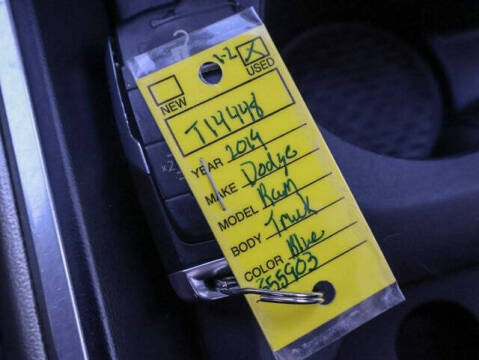 1-2
NEW USED
T14448
YEAR 2019
MAKE Dodge
MODEL Ram
BODY Truck
COLOR Blue
555903
x2